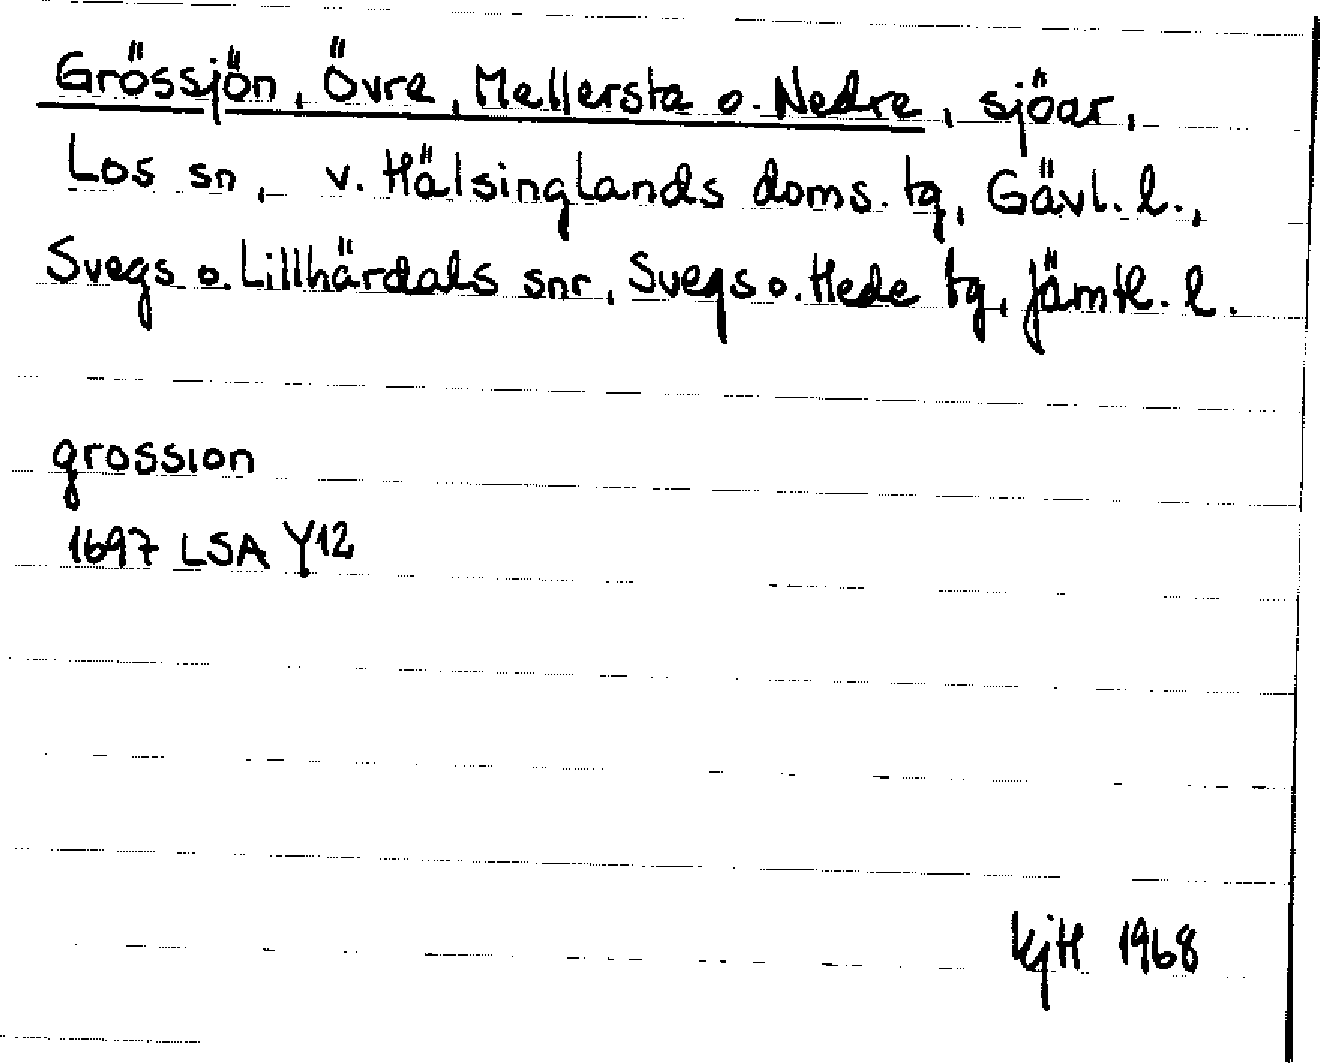 Grössjön, Övre, Mellersta o. Nedre, sjöar,
Los sn, v. Hälsinglands doms. tg, Gävl. l.,
Svegs o. Lillhärdals snr, Svegs o. Hede tg, Jämtl. l.
grossion
1697 LSA Y12
KjH 1968